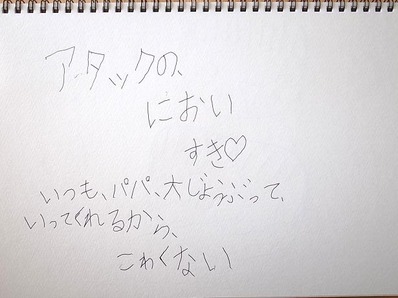 アタックの、
におい
すき♡
いつも、パパ、大じょうぶって、
いってくれるから、
こわくない